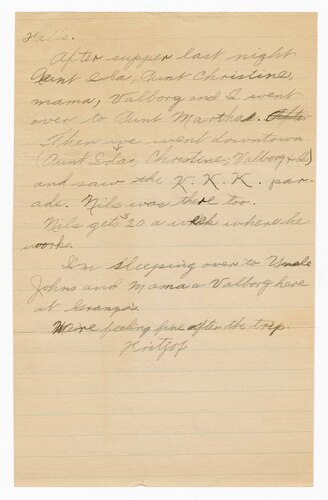 Falls.
After supper last night
Aunt Lola, Aunt Christine,
mama, Valborg and I went
over to Aunt Marthas.
Then we went downtown
(Aunt Lola, Christine, Valborg & I)
and saw the K. K. K. par-
ade. Nils was there too.
Nils gets $20 a week where he
works.
I'm sleeping over to Uncle
Johns and Mama & Valborg here
at Granpa's.
We're feeling fine after the trip.
Fritjof